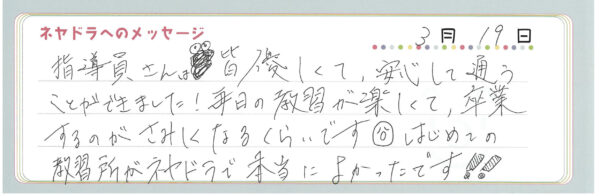 ネヤドラへのメッセージ
3月19日
指導員さんは皆優しくて、安心して通う
ことができました!毎日の教習が楽しくて、卒業
するのがさみしくなるくらいです はじめての
教習所がネヤドラで本当によかったです!!